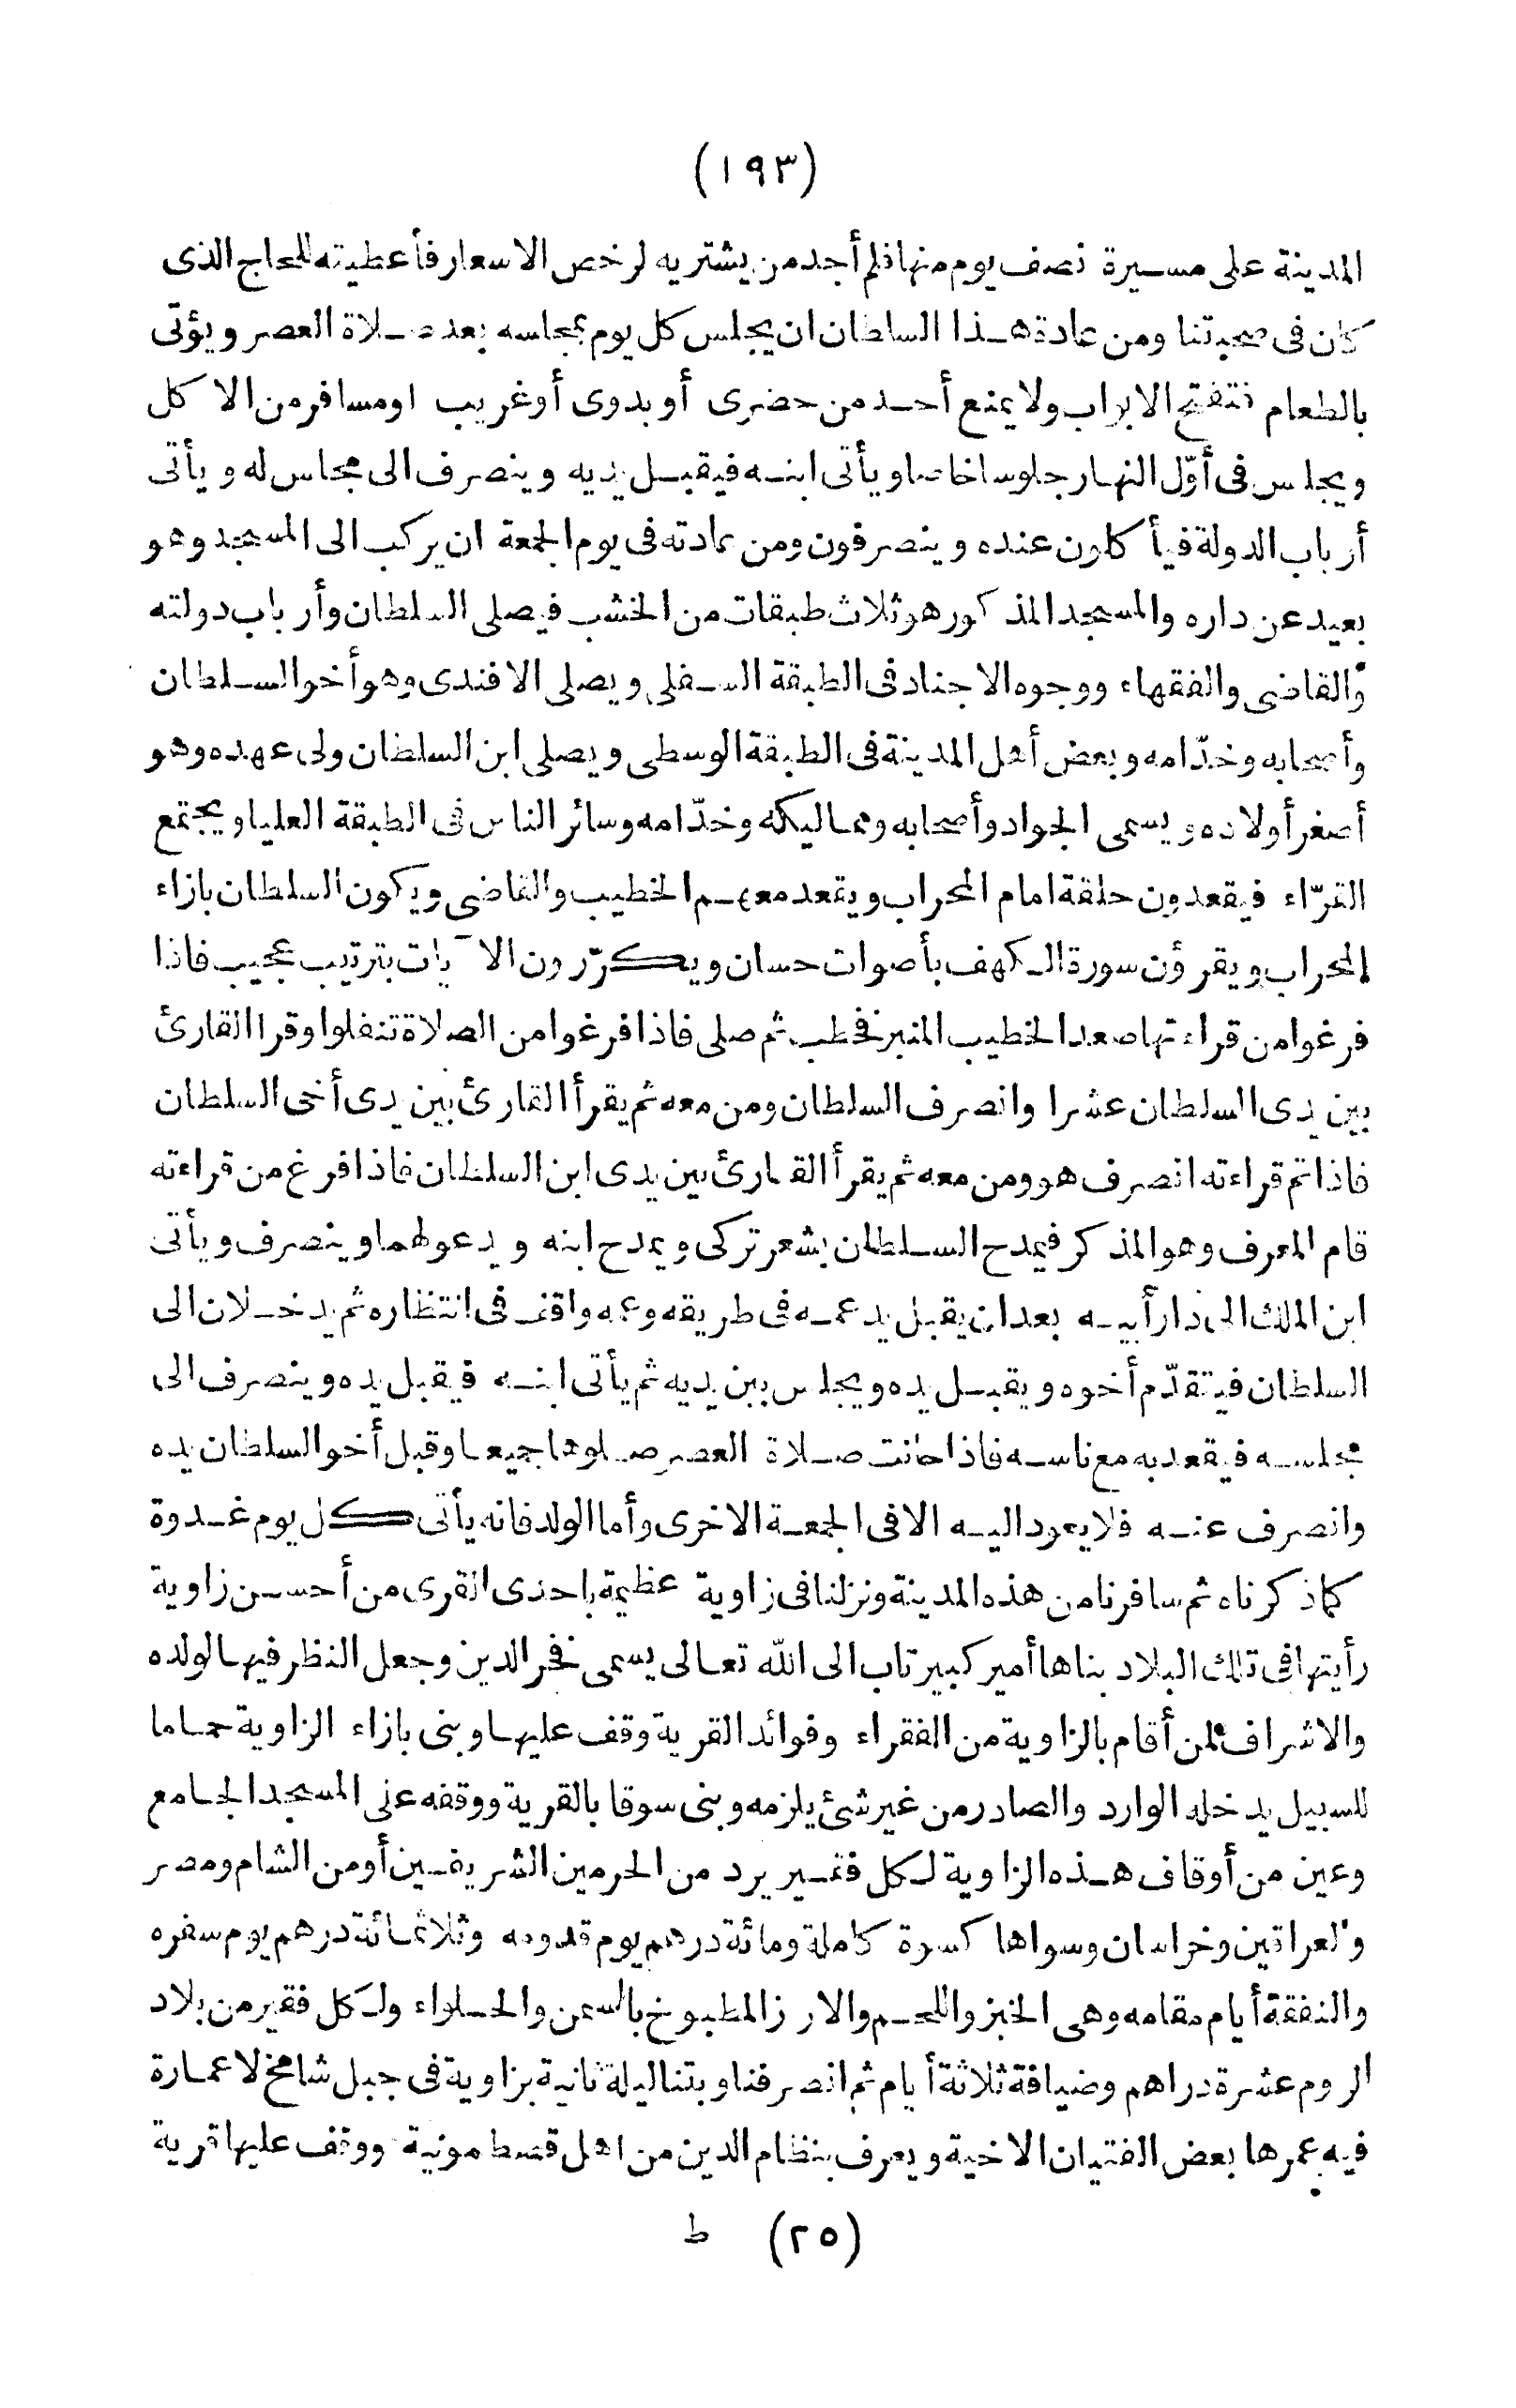 (١٩٣)
المدينة على مسيرة نصف يوم منها فلم أجد من يشتريه لرخص الاسعار فأعطيته للحاج الذى
كان فى صحبتنا ومن عادة هذا السلطان ان يجلس كل يوم بمجلسه بعد صلاة العصر ويؤتى
بالطعام فتفتح الابواب ولا يمنع أحد من حضرى أو بدوى أو غريب او مسافر من الاكل
ويجلس فى أوّل النهار جلوسا خاصا ويأتى ابنه فيقبل يديه وينصرف الى مجلس له ويأتى
أرباب الدولة فيأكلون عنده وينصرفون ومن عادته فى يوم الجمعة ان يركب الى المسجد وهو
بعيد عن داره والمسجد المذكور هو ثلاث طبقات من الخشب فيصلى السلطان وأرباب دولته
والقاضى والفقهاء ووجوه الاجناد فى الطبقة السفلى ويصلى الافندى وهو أخو السلطان
وأصحابه وخدّامه وبعض أهل المدينة فى الطبقة الوسطى ويصلى ابن السلطان ولى عهده وهو
أصغر أولاده ويسمى الجواد وأصحابه ومماليكه وخدّامه وسائر الناس فى الطبقة العليا ويجتمع
القرّاء فيقعدون حلقة امام المحراب ويقعد معهم الخطيب والقاضى ويكون السلطان بازاء
المحراب ويقرؤن سورة الكهف بأصوات حسان ويكرّرون الآيات بترتيب عجيب فاذا
فرغوا من قراءتها صعد الخطيب المنبر فخطب ثم صلى فاذا فرغوا من الصلاة تنفلوا وقرا القارئ
بين يدى السلطان عشرا وانصرف السلطان ومن معه ثم يقرأ القارئ بين يدى أخى السلطان
فاذا تم قراءته انصرف هو ومن معه ثم يقرأ القارئ بين يدى ابن السلطان فاذا فرغ من قراءته
قام المعرف وهو المذكر فيمدح السلطان بشعر تركى ويمدح ابنه ويدعو لهما وينصرف ويأتى
ابن الملك الى دار أبيه بعد ان يقبل يد عمه فى طريقه وعمه واقف فى انتظاره ثم يدخلان الى
السلطان فيتقدّم أخوه ويقبل يده ويجلس بين يديه ثم يأتى ابنه فيقبل يده وينصرف الى
مجلسه فيقعد به مع ناسه فاذا حانت صلاة العصر صلوها جميعا وقبل أخو السلطان يده
وانصرف عنه فلا يعود اليه الا فى الجمعة الاخرى وأما الولد فانه يأتى كل يوم غدوة
كما ذكرناه ثم سافرنا من هذه المدينة ونزلنا فى زاوية عظيمة باحدى القرى من أحسن زاوية
رأيتها فى تلك البلاد بناها أمير كبير تاب الى الله تعالى يسمى فخر الدين وجعل النظر فيها لولده
والاشراف لمن أقام بالزاوية من الفقراء وفوائد القرية وقف عليها وبنى بازاء الزاوية حماما
للسبيل يدخله الوارد والصادر من غير شئ يلزمه وبنى سوقا بالقرية ووقفه على المسجد الجامع
وعين من أوقاف هذه الزاوية لكل فقير يرد من الحرمين الشريفين أو من الشام ومصر
والعراقين وخراسان وسواها كسوة كاملة ومائة درهم يوم قدومه وثلاثمائة درهم يوم سفره
والنفقة أيام مقامه وهى الخبز واللحم والارز المطبوخ بالسمن والحلواء ولكل فقير من بلاد
الروم عشرة دراهم وضيافة ثلاثة أيام ثم انصرفنا وبتنا ليلة ثانية بزاوية فى جبل شامخ لا عمارة
فيه عمرها بعض الفتيان الاخية ويعرف بنظام الدين من اهل قصطمونية ووقف عليها قرية
(٢٥) ط